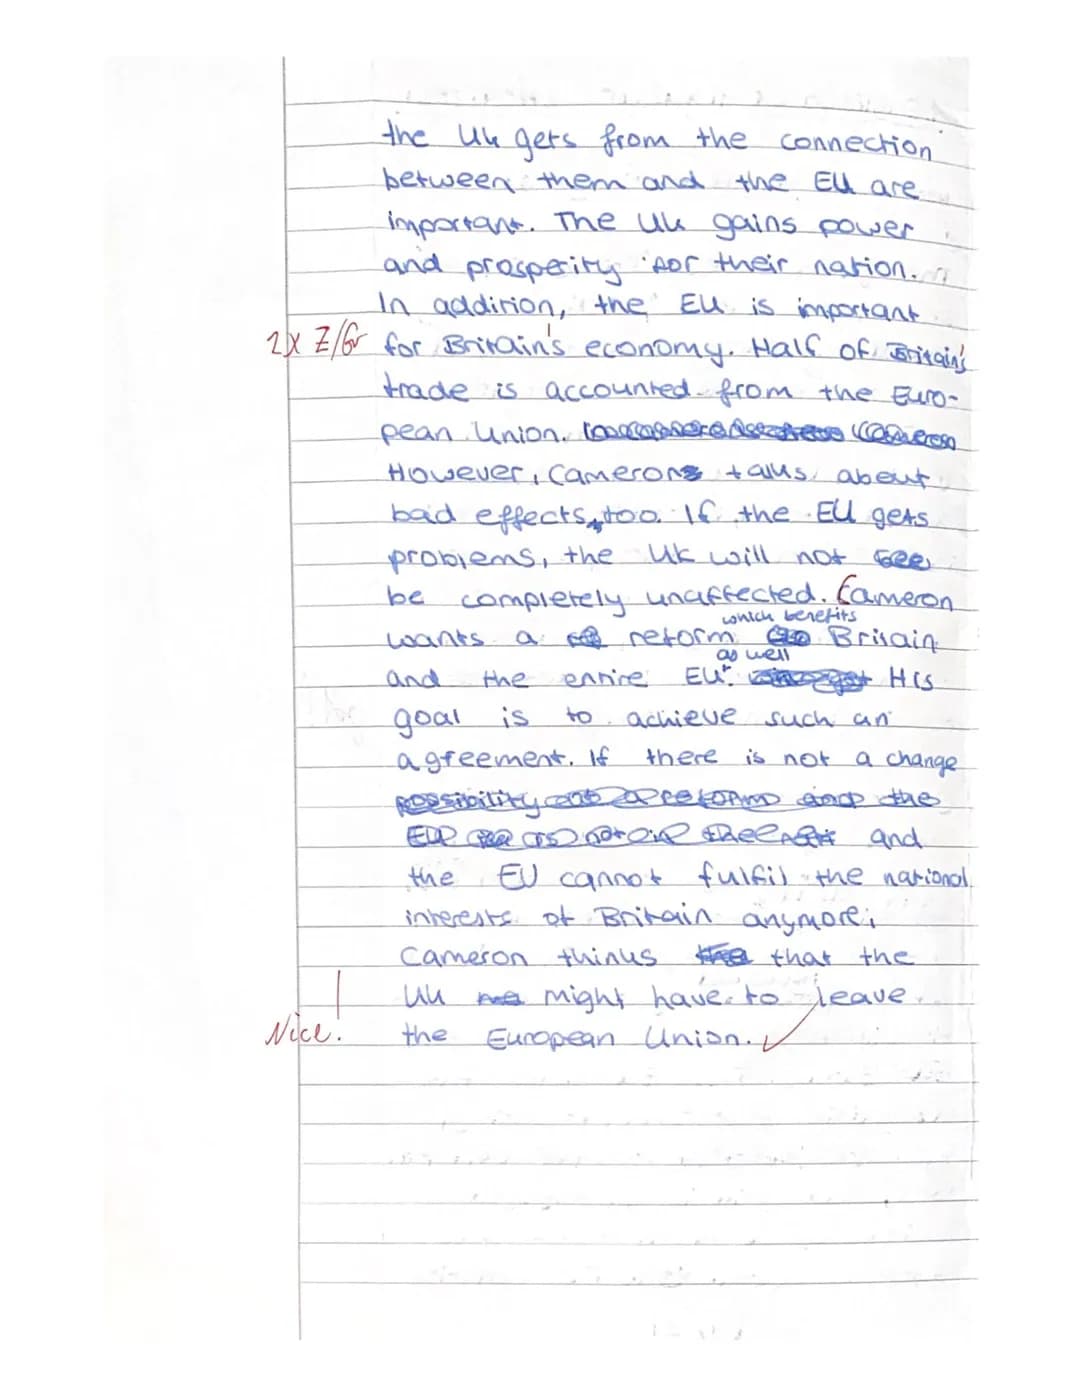 the Uk gets from the connection
between them and the EU are
important. The Uk gains power
and prosperity for their nation.
In addition, the EU is important
2x Z/Gr for Britain's economy. Half of Britain's
trade is accounted from the Euro-
pean Union.
However, Cameron talks about
bad effects, too. If the EU gets
problems, the Uk will not
be completely unaffected. Cameron
which benefits
wants a reform Britain
as well
and the entire EU. His
goal is to achieve such an
agreement. If there is not a change
possibility and the
EU and
the EU cannot fulfil the national
interests of Britain anymore,
Cameron thinks that the
Uk might have to leave
Nice! the European Union.